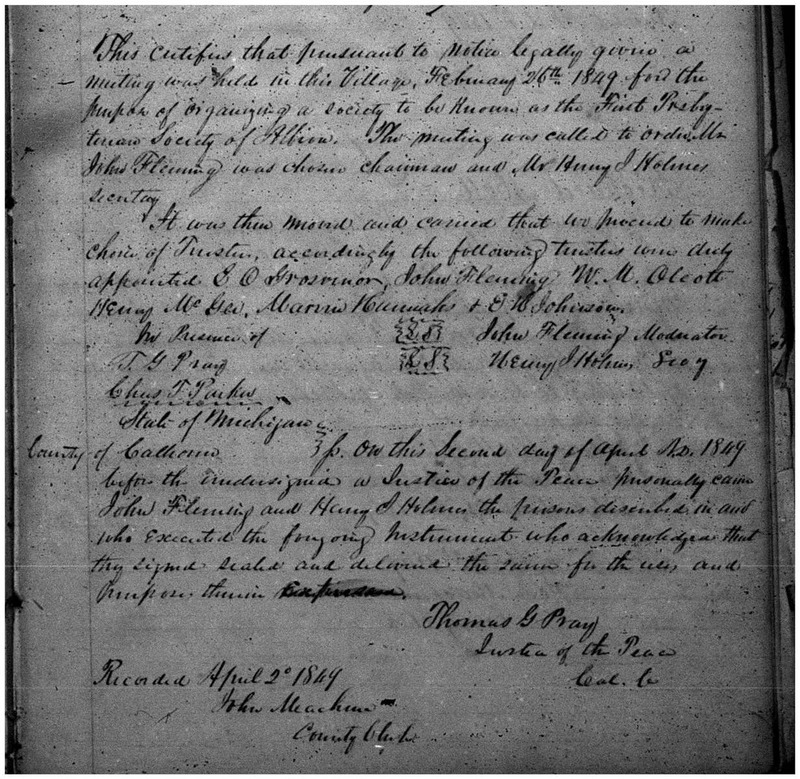 This certifies that pursuant to notice legally given a
meeting was held in this Village, February 26th 1849 for the
purpose of organizing a society to be known as the First Presby-
terian Society of Albion. The meeting was called to order Mr
John Fleming was chosen chairman and Mr Henry J Holmes
secretay
It was then moved and carried that we proceed to make
choice of Trustees, accordingly the following trustees were duly
appointed E O Grosvenor, John Fleming W. M. Olcott
Henry McGee, Marvin Hannahs & Johnson.
In Presence of L S John Fleming Moderator
T. G Pray L S Henry J Holmes Secy
Chas T Parker
State of Michigan
County of Calhoun } ss. On this Second day of April A.D. 1849
before the undersigned a Justice of the Peace personally came
John Fleming and Henry J Holmes the persons described in and
who executed the foregoing Instrument who acknowledged that
they signed sealed and delivered the same for the uses and
purposes therein
Thomas G Pray
Justice of the Peace
Cal. Co
Recorded April 2d 1849
John Meachem
County Clerk